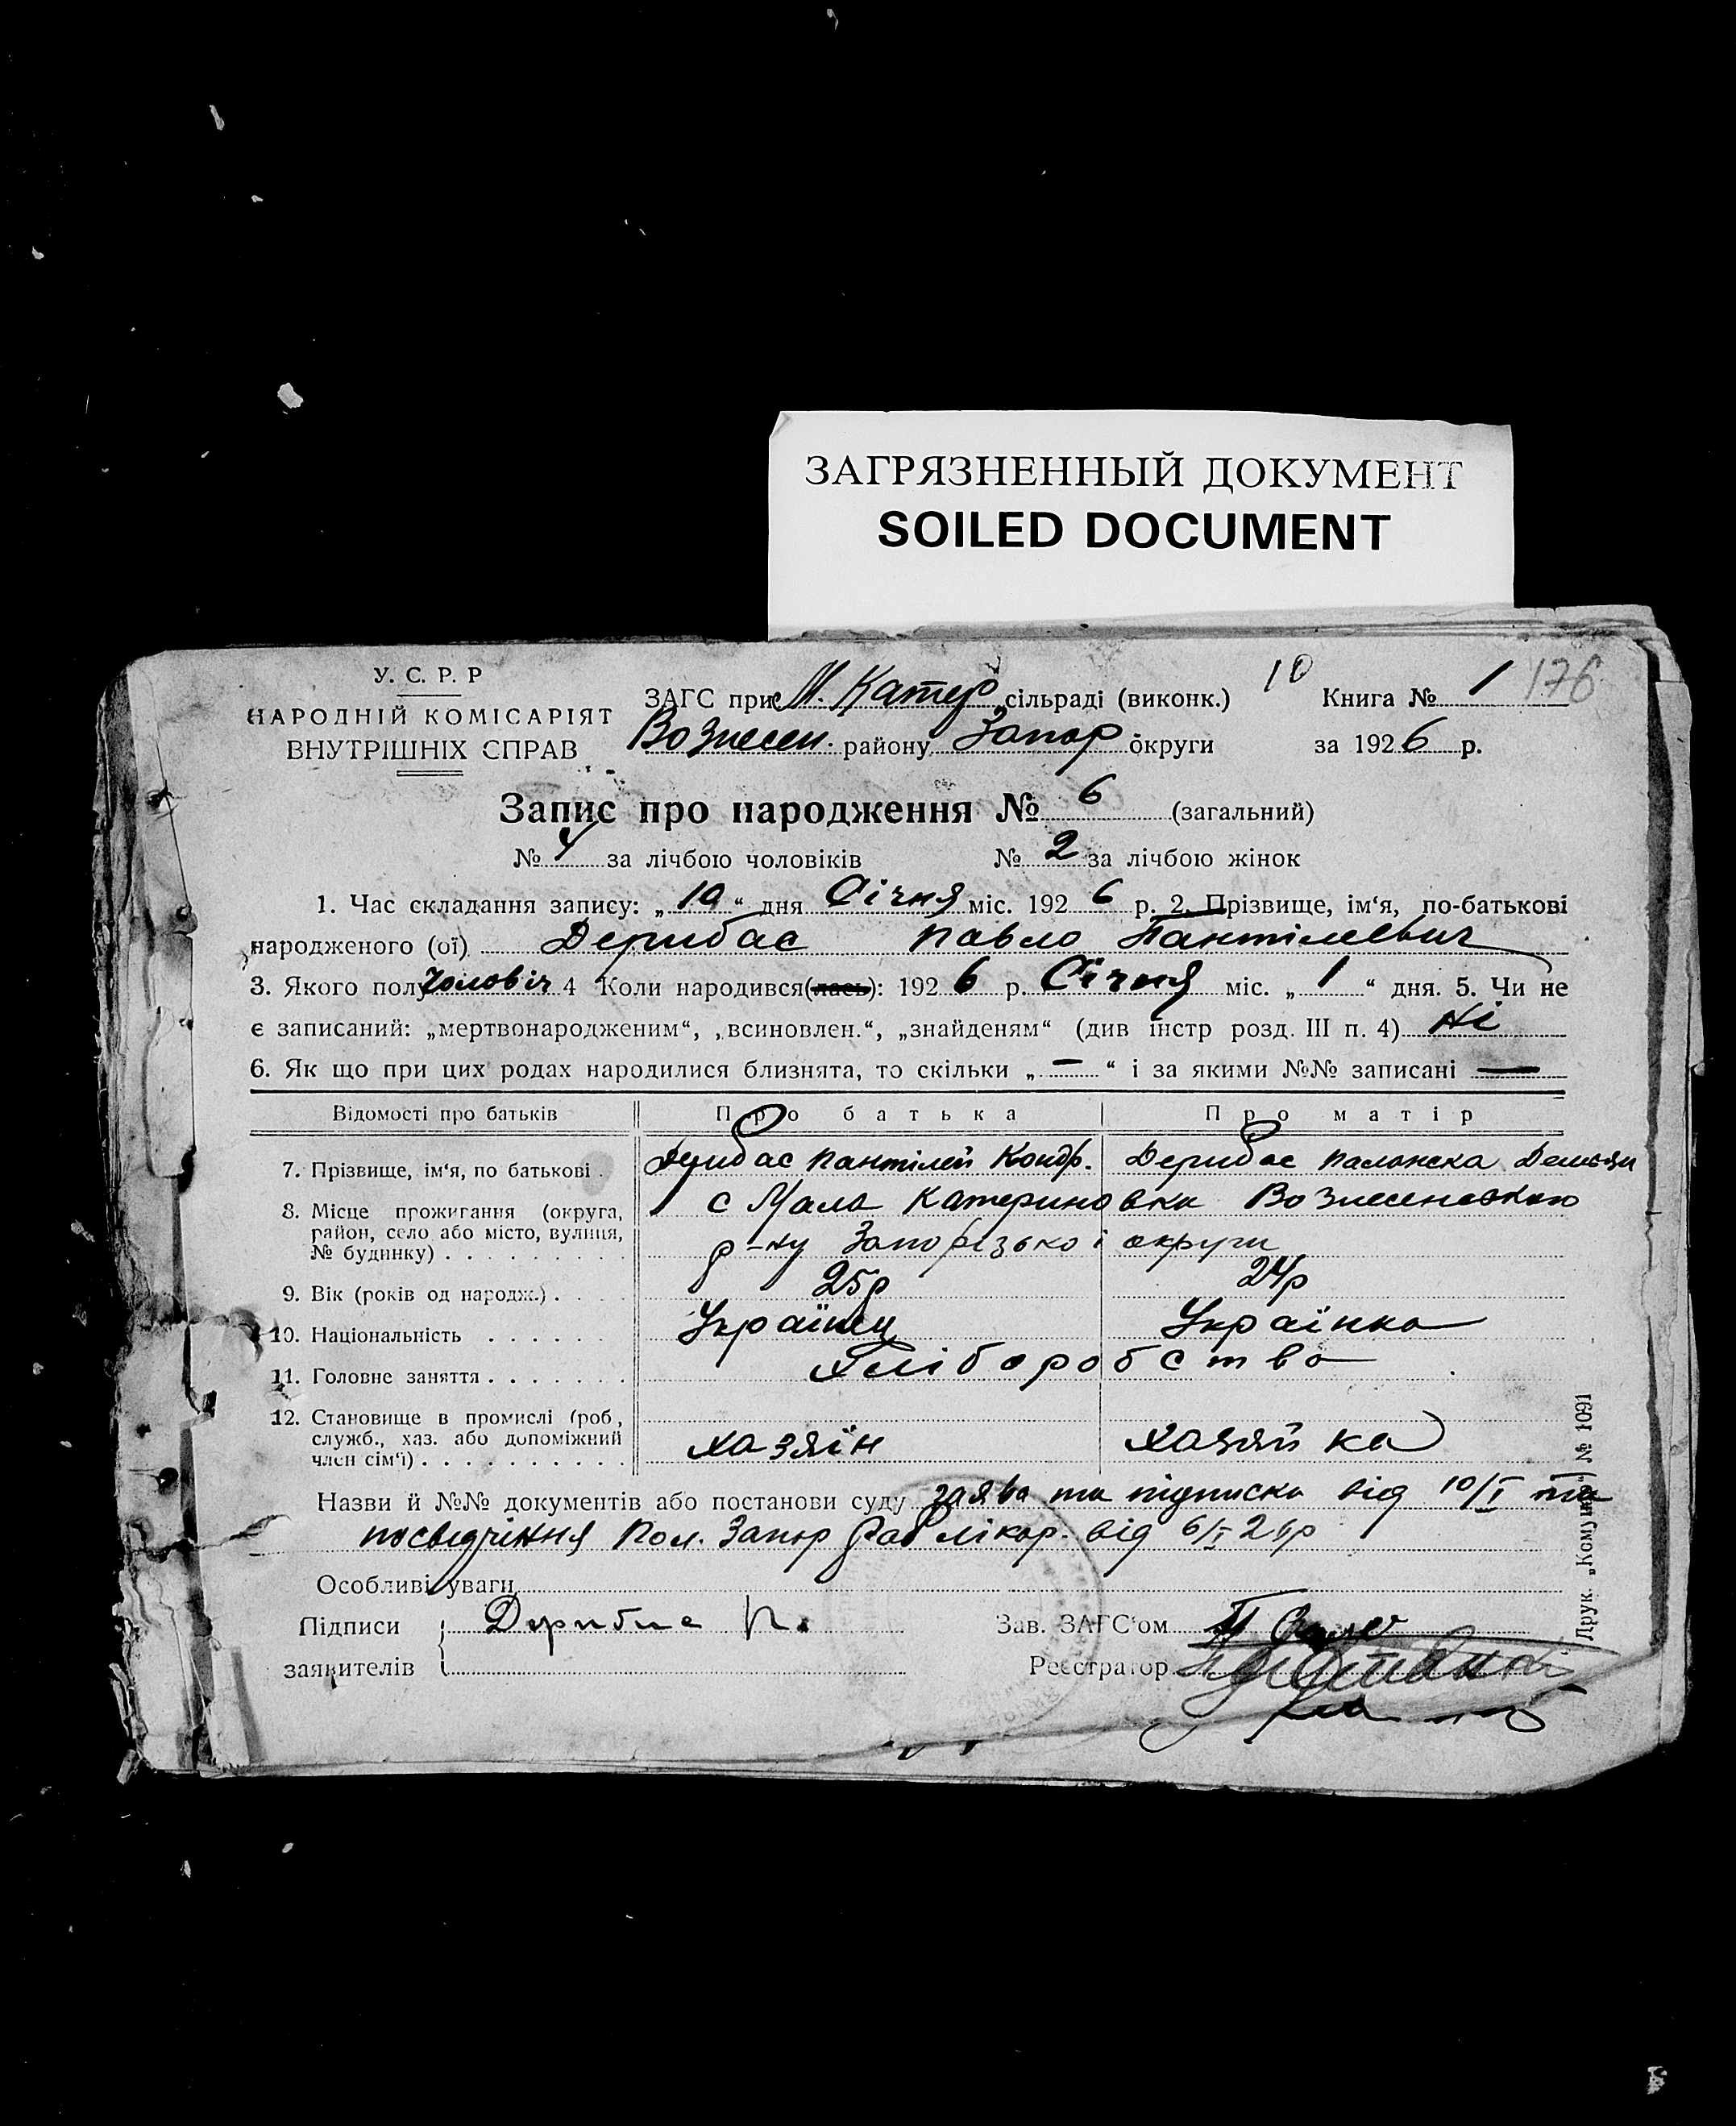 ЗАГРЯЗНЕННЫЙ ДОКУМЕНТ
SOILED DOCUMENT
У. С. Р. Р
НАРОДНІЙ КОМІСАРІЯТ
ВНУТРІШНІХ СПРАВ
ЗАГС при М. Катер сільраді (виконк.) 10 Книга № 1 176
Вознесен. району Запор округи за 1926 р.
Запис про народження № 6 (загальний)
№ 4 за лічбою чоловіків № 2 за лічбою жінок
1. Час складання запису: „10“ дня Січня міс. 1926 р. 2. Прізвище, ім‘я, по-батькові
народженого (ої) Дерибас Павло Пантілеевич
3. Якого полу чоловіч 4 Коли народився(лась): 1926 р. Січня міс. „1“ дня. 5. Чи не
є записаний: „мертвонародженим“, „всиновлен.“, „знайденям“ (див інстр розд. III п. 4) Ні
6. Як що при цих родах народилися близнята, то скільки „—“ і за якими №№ записані —
Відомості про батьків Про батька Про матір
7. Прізвище, ім‘я, по батькові . Дерибас Пантілей Кондр. Дерибас
8. Місце прожигання (округа, район, село або місто, вулиця, № будинку) . . . . . . . . с Мала Катериновка Вознесеновського
р-ну Запорізької округи
9. Вік (років од народж.) . . . . 25р 24р
10. Національність . . . . . . Українец Українка
11. Головне заняття . . . . . . . Хліборобство
12. Становище в промислі (роб, служб., хаз. або допоміжний член сім‘ї) . . . . . . . . . . хазяін хазяйка
Назви й №№ документів або постанови суду заява та підписка від 10/I та
посвідчіння Пол. Запор рай лікар. від 6/I 26р
Особливі уваги
Підписи Дерибас П. Зав. ЗАГС‘ом
заявителів Реєстратор
Друк. „Комунар“ № 1091